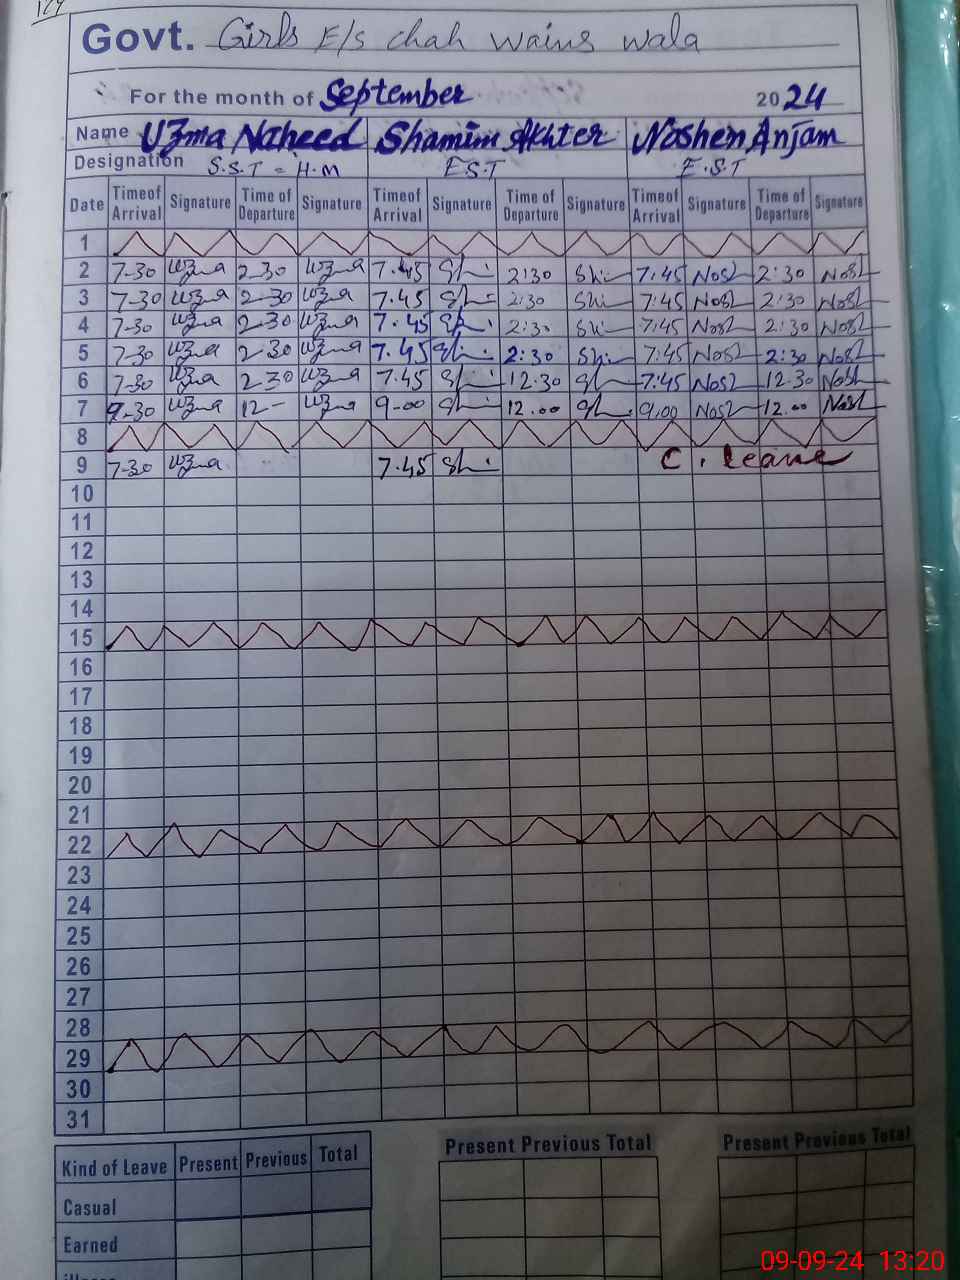 Govt. Girls E/S chah wains wala
For the month of September 2024
Name Uzma Naheed Shamim Akhter Noshen Anjam
Designation S.S.T = H.M E.S.T E.S.T
Date Time of Arrival Signature Time of Departure Signature Time of Arrival Signature Time of Departure Signature Time of Arrival Signature Time of Departure Signature
1
2 7-30 Uzma 2-30 Uzma 7.45 Sh 2:30 Sh 7:45 Nosh 2:30 Nosh
3 7-30 Uzma 2-30 Uzma 7.45 Sh 2:30 Sh 7:45 Nosh 2:30 Nosh
4 7-30 Uzma 2-30 Uzma 7.45 Sh 2:30 Sh 7:45 Nosh 2:30 Nosh
5 7-30 Uzma 2-30 Uzma 7.45 Sh 2:30 Sh 7:45 Nosh 2:30 Nosh
6 7-30 Uzma 2-30 Uzma 7.45 Sh 12.30 Sh 7:45 Nosh 12.30 Nosh
7 9-30 Uzma 12- Uzma 9-00 Sh 12.00 Sh 9.00 Nosh 12.00 Nosh
8
9 7-30 Uzma 7.45 Sh C. leave
10
11
12
13
14
15
16
17
18
19
20
21
22
23
24
25
26
27
28
29
30
31
Kind of Leave Present Previous Total Present Previous Total Present Previous Total
Casual
Earned
09-09-24 13:20